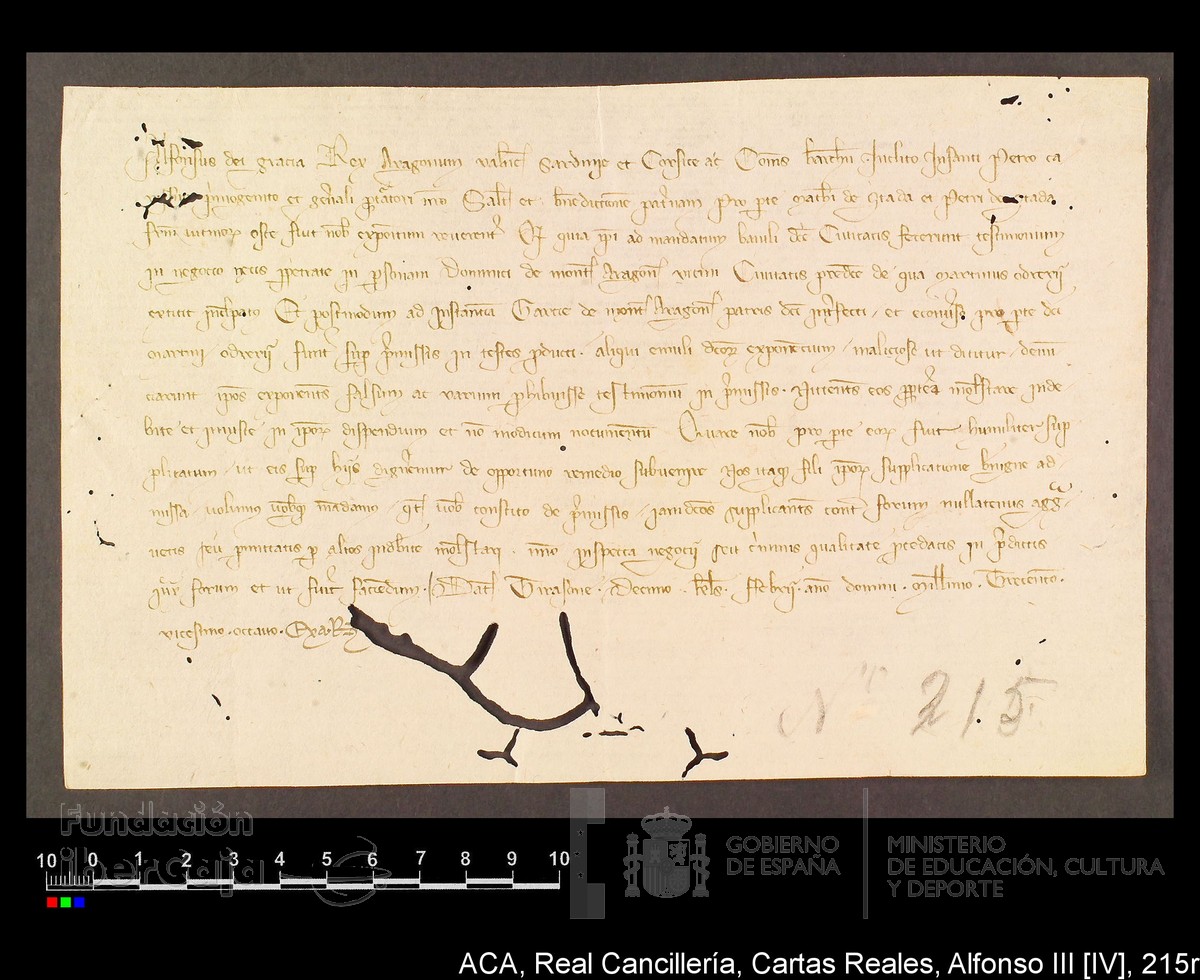 Alfonsus dei gracia Rex Aragonum Valencie Sardinie et Corsice ac Comes Barchinone Inclito Infanti Petro ca
primogenito et generali procuratori Salutem et benedictionem paternam Pro parte Mathei de et Petri de
fuit nobis expositum reverenter Quod quia ipsi ad mandatum baiuli dicte Civitatis fecerunt testimonium
in negocio necis perpetrate in personam Dominici de Aragon vicini Civitatis predicte de qua Martinus
extitit inculpatus Et postmodum ad instanciam Garcie de Aragon patris dicti interfecti et econverso pro parte dicti
Martini fuerunt super premissis in testes producti aliqui emuli dictorum exponencium maliciose ut dicitur denun
ciarunt ipsos exponentes falsum ac varium perhibuisse testimonium in premissis Nitentes eos propterea molestare inde
bite et iniuste in ipsorum dispendium et non modicum nocumentum Quare nobis pro parte eorum fuit humiliter sup
plicatum ut eis super hiis dignemur de opportuno remedio subvenire Nos itaque fili ipsorum supplicatione benigne ad
missa volumus vobisque mandamus quod vobis constito de premissis iamdictos supplicantes contra forum nullatenus aggra
vetis seu permittatis per alios indebite molestari immo inspecta negocii seu criminis qualitate procedatis in predictis
forum et ut fuerit faciendum Datum Tirasone Decimo kalendas Febrerii anno domini Millesimo Trecentesimo
vicesimo octavo
Nº 215
Fundación
iberCaja
10 0 1 2 3 4 5 6 7 8 9 10
GOBIERNO
DE ESPAÑA
MINISTERIO
DE EDUCACIÓN, CULTURA
Y DEPORTE
ACA, Real Cancillería, Cartas Reales, Alfonso III [IV], 215r